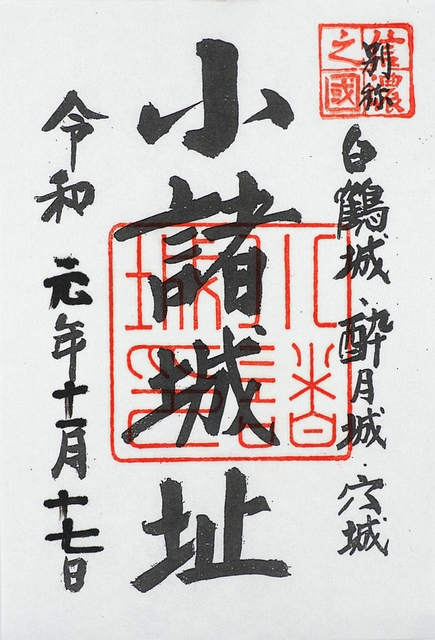 信濃
之國
別称
白鶴城・酔月城・穴城
小諸城址
令和元年十一月十七日